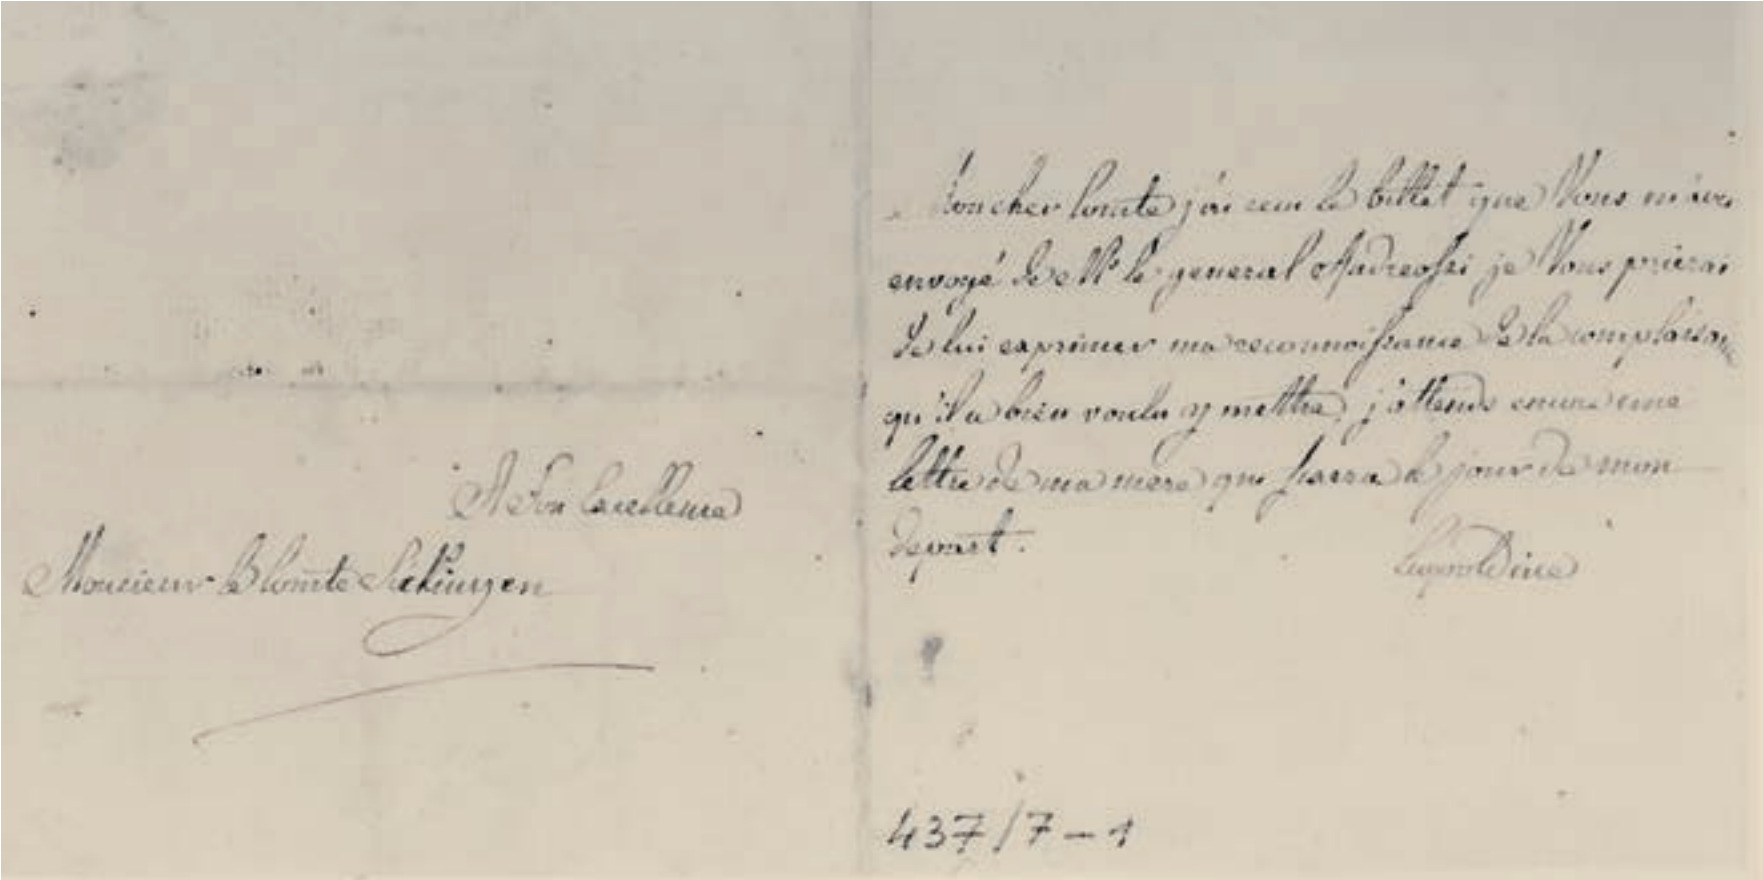 A Son Excellence
Monsieur le Comte Sickingen
Mon cher Comte j'ai recu le billet que Vous m'avez
envoyé de Mr le general Andreossi je Vous prierai
de lui exprimer ma reconnoissance de la complaisance
qu'il a bien voulu y mettre, j'attends encore une
lettre de ma mere qui fixera le jour de mon
depart.
Leopoldine
437/7-1